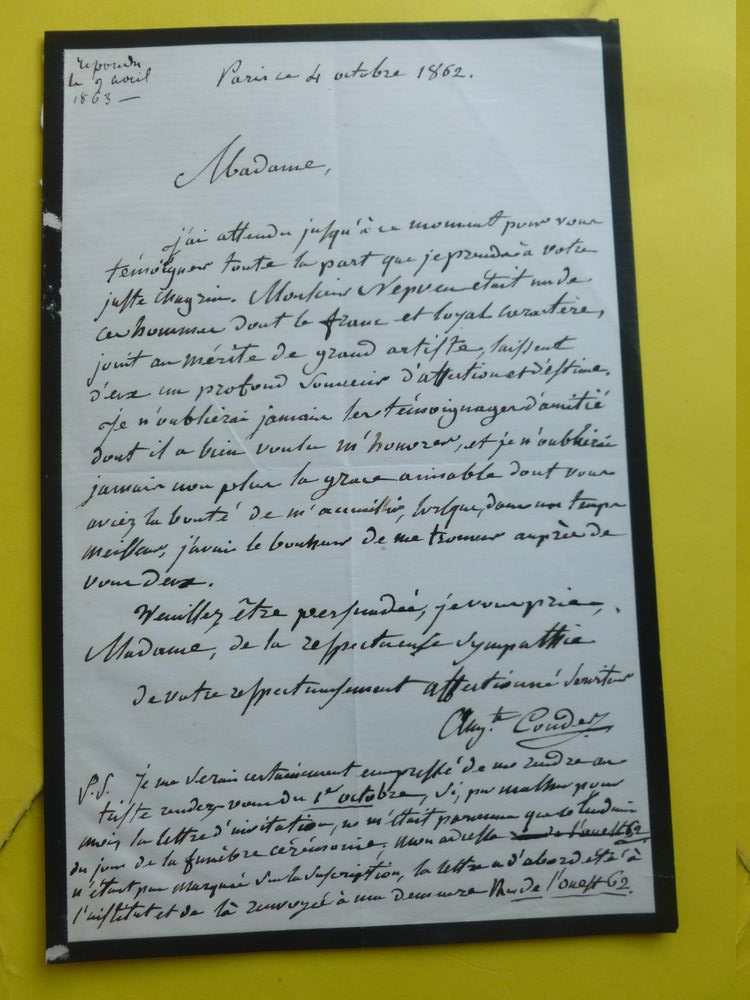 répondu
le 9 avril
1863 —
Paris ce 4 octobre 1862.
Madame,
j'ai attendu jusqu'à ce moment pour vous
témoigner toute la part que je prends à votre
juste chagrin. Monsieur Nepveu était un de
ces hommes dont le franc et loyal caractère,
joint au mérite de grand artiste, laissent
d'eux un profond souvenir d'affection et d'estime.
Je n'oublierai jamais les témoignages d'amitié
dont il a bien voulu m'honorer, et je n'oublierai
jamais non plus la grace aimable dont vous
aviez la bonté de m'accueillir, lorsque, dans un temps
meilleur, j'avais le bonheur de me trouver auprès de
vous deux.
Veuillez être persuadée, je vous prie,
Madame, de la respectueuse sympathie
de votre respectueusement affectionné serviteur
Aug.te Couder
P.S. Je me serais certainement empressé de me rendre au
triste rendez-vous du 1er octobre, si, par malheur pour
moi, la lettre d'invitation, ne m'était parvenue que le lendemain
du jour de la funèbre cérémonie. mon adresse rue de l'ouest 62
n'étant pas marquée sur la suscription, la lettre a d'abord été à
l'institut et de là renvoyée à ma demeure Rue de l'ouest 62.